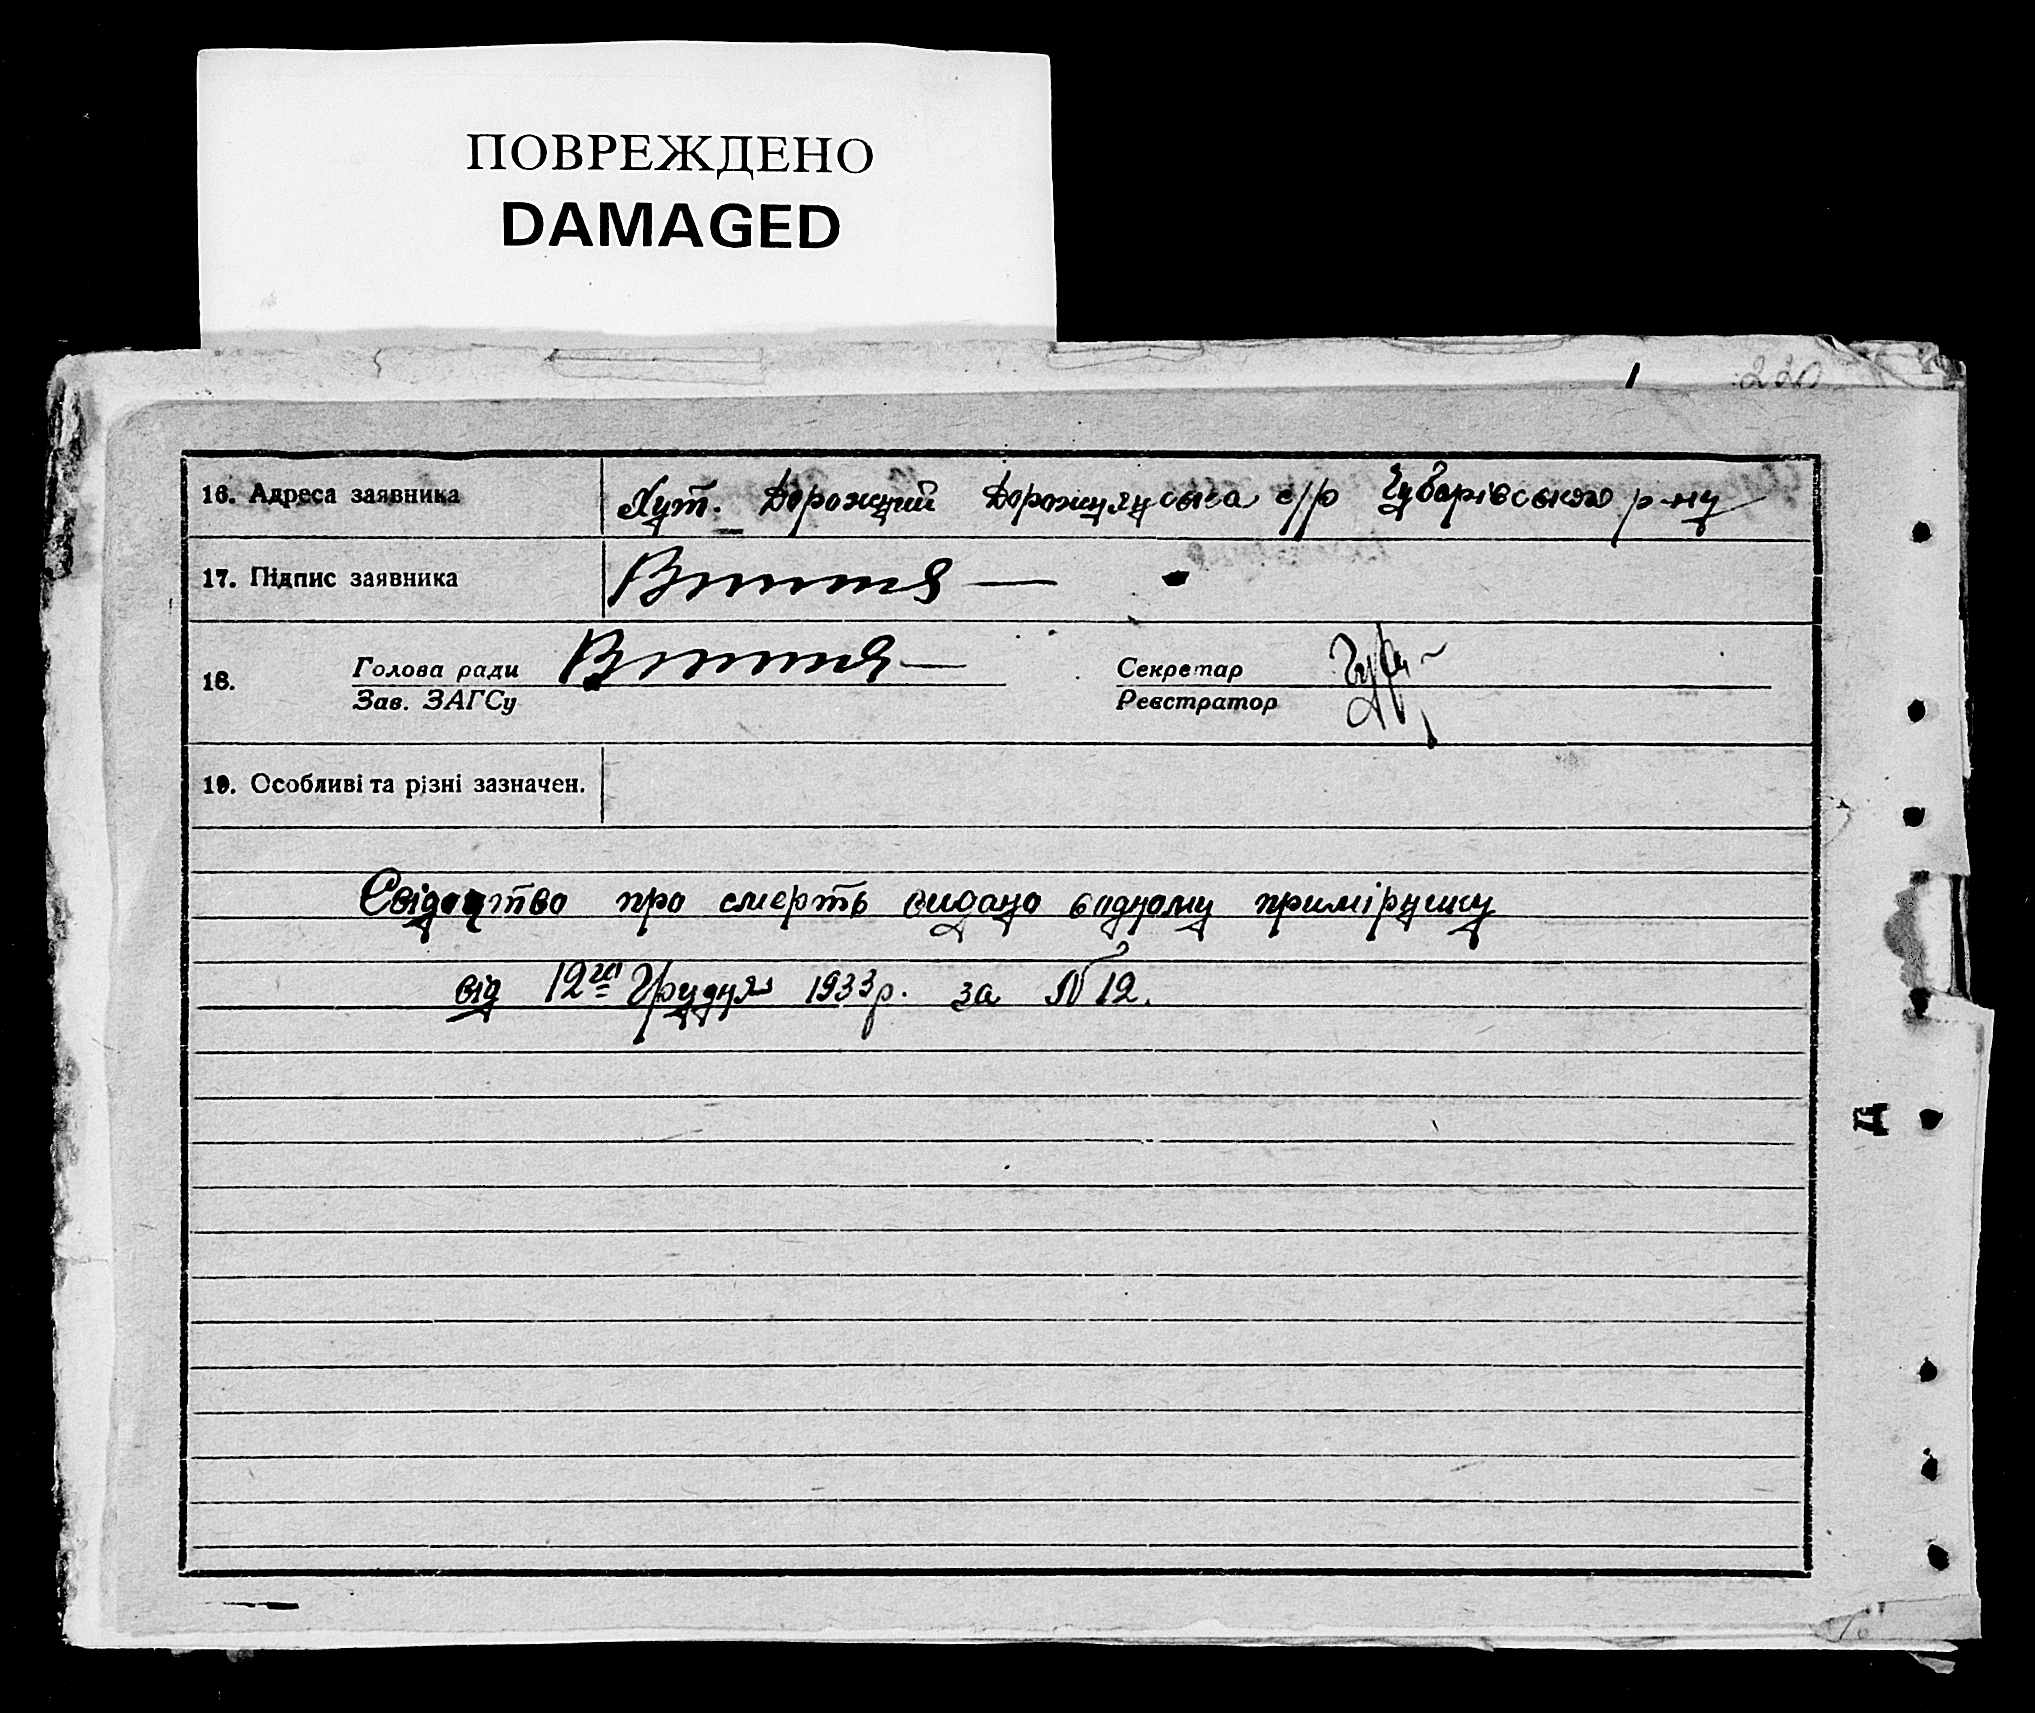 ПОВРЕЖДЕНО
DAMAGED
220
16. Адреса заявника Хут. Дорожний с/р Чубарівського р-ну
17. Підпис заявника
18. Голова ради
Зав. ЗАГСу
Секретар
Реєстратор
19. Особливі та різні зазначен.
Свідоцтво про смерть видано в одному примірнику
від 12го Грудня 1933 р. за № 12.
Д